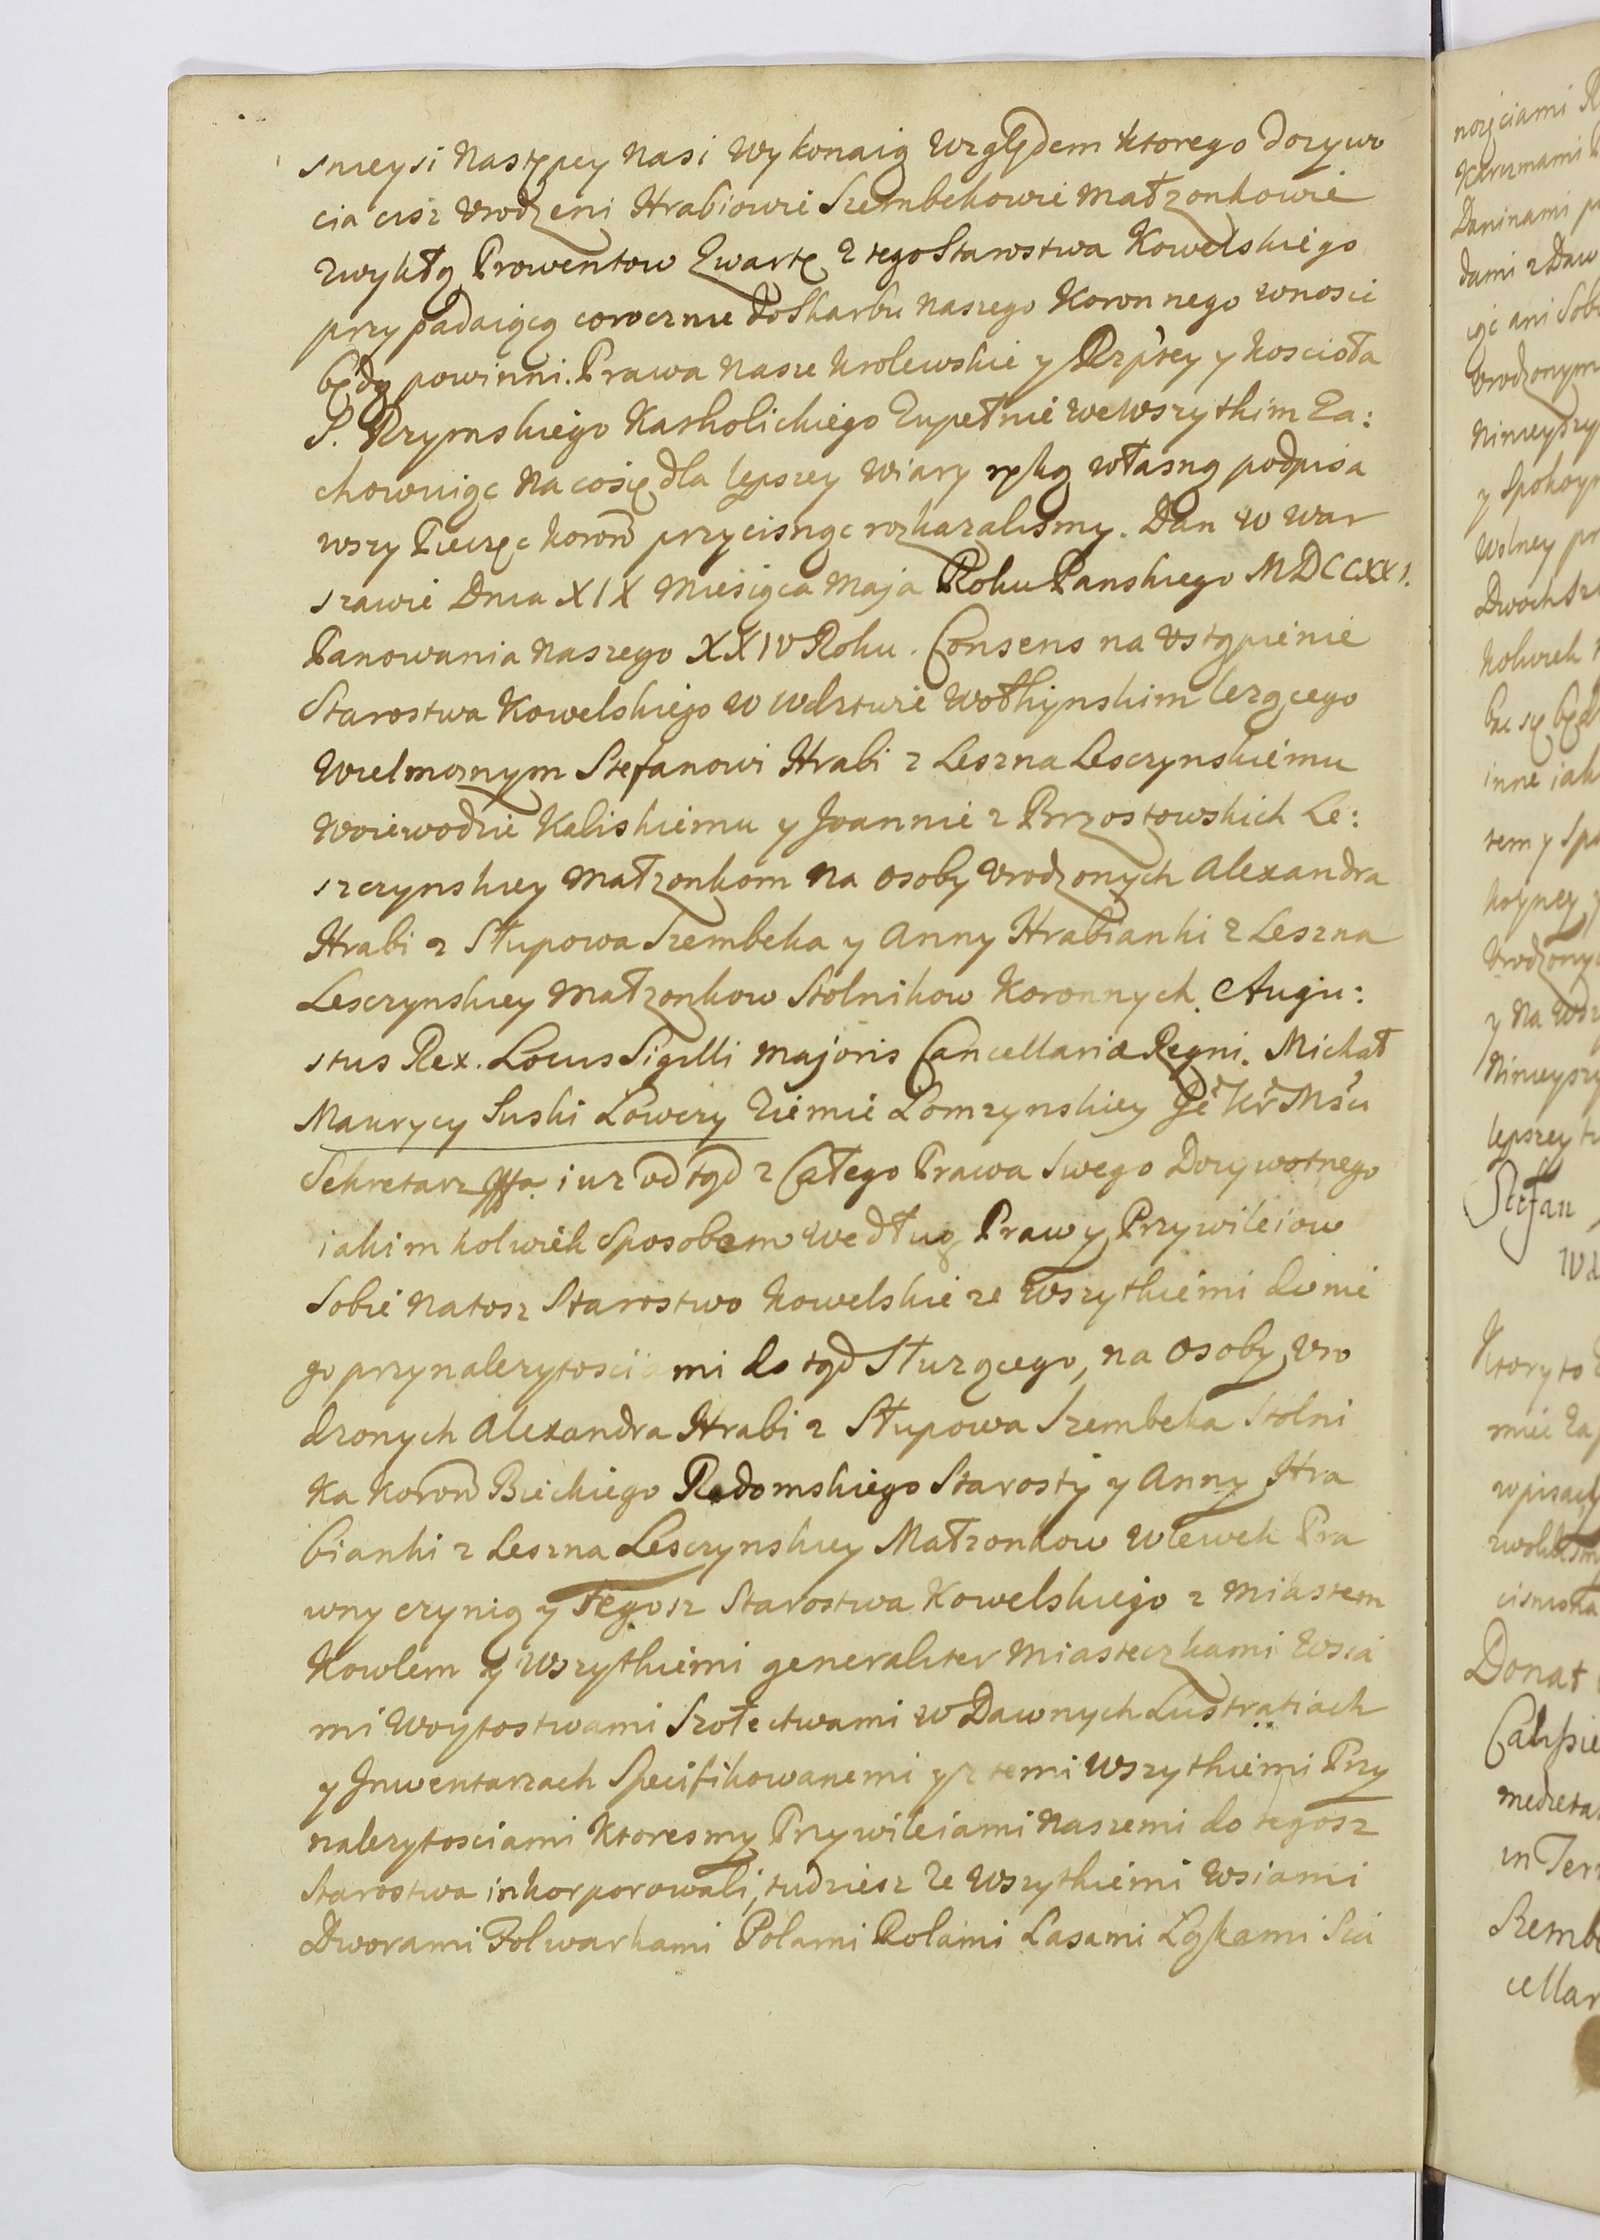 snieysi Następcy Nasi wykonaią względem ktorego dozywo
cia cisz Urodzeni Hrabiowie Szembekowie Małzonkowie
zwykłą Prowentow Zwartę z tego Starostwa Kowelskiego
przypadaiącą corocznie do Skarbu Naszego Koronnego wnosić
będą powinni. Prawa Nasze Krolewskie y Rzptey y Koscioła
S. Rzymskiego Katholickiego Zupełnie we wszytkim Za:
chowuiąc Na co się dla lepszey wiary ręką własną podpisa
wszy Pieczęc Koron przycisnąc rozkazalismy. Dan w War
szawie Dnia XIX Miesiąca Maja Roku Panskiego MDCCXXI.
Panowania Naszego XXIV Roku. Consens na Ustąpienie
Starostwa Kowelskiego w Wdztwie Wołhynskim lezącego
Wielmoznym Stefanowi Hrabi z Leszna Lesczynskiemu
Woiewodzie Kaliskiemu y Joannie z Przostowskich Le:
szczynskiey Małzonkom na Osoby Urodzonych Alexandra
Hrabi z Słupowa Szembeka y Anny Hrabianki z Leszna
Lesczynskiey Małzonkow Stolnikow Koronnych. Augu:
stus Rex. Locus Sigilli Majoris Cancellariæ Regni. Michał
Maurycy Suski Lowczy Ziemie Lomzynskiey Je Kr Msci
Sekretarz iuz odtąd z Całego Prawa Swego Dozywotnego
iakimkolwiek Sposobem według Praw y Przywileiow
Sobie na tosz Starostwo Kowelskie ze wszytkiemi do nie
go przynalezytosciami dotąd Słuzącego, na Osoby Uro
dzonych Alexandra Hrabi z Słupowa Szembeka Stolni
Ka Koron Bieckiego Radomskiego Starosty y Anny Hra
bianki z Leszna Lesczynskiey Małzonkow wlewek Pra
wny czynią y Tegosz Starostwa Kowelskiego z Miastem
Kowlem y wszytkiemi generaliter Miasteczkami Wsia
mi Woytostwami Szołectwami w Dawnych Lustratiach
y Inwentarzach Specifikowanemi y z temi wszytkiemi Przy
nalezytosciami Ktoresmy Przywileiami Naszemi do tegosz
Starostwa inkorporowali, tudziesz ze wszytkiemi Wsiami
Dworami Folwarkami Polami Rolami Lasami Ląkami Sia